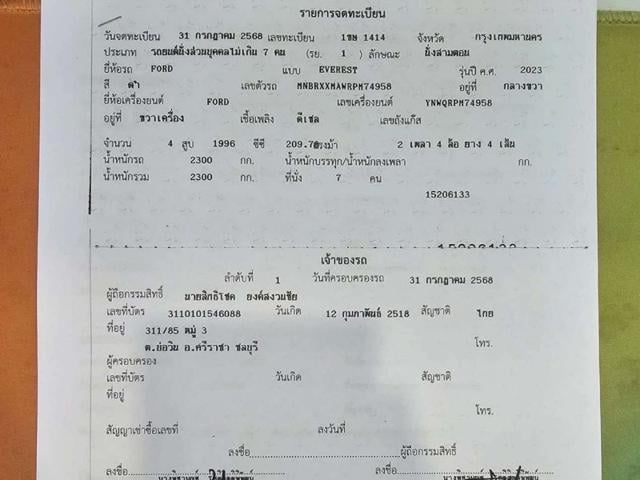 รายการจดทะเบียน
วันจดทะเบียน 31 กรกฎาคม 2568 เลขทะเบียน 1ขษ 1414 จังหวัด กรุงเทพมหานคร
ประเภท รถยนต์นั่งส่วนบุคคลไม่เกิน 7 คน (รย. 1 ) ลักษณะ นั่งสามตอน
ยี่ห้อรถ FORD แบบ EVEREST รุ่นปี ค.ศ. 2023
สี ดำ เลขตัวรถ MNBRXXMAWRPM74958 อยู่ที่ กลางขวา
ยี่ห้อเครื่องยนต์ FORD เลขเครื่องยนต์ YNWQRPM74958
อยู่ที่ ขวาเครื่อง เชื้อเพลิง ดีเซล เลขถังแก๊ส
จำนวน 4 สูบ 1996 ซีซี 209.78 แรงม้า 2 เพลา 4 ล้อ ยาง 4 เส้น
น้ำหนักรถ 2300 กก. น้ำหนักบรรทุก/น้ำหนักลงเพลา กก.
น้ำหนักรวม 2300 กก. ที่นั่ง 7 คน
15206133
15206133
เจ้าของรถ
ลำดับที่ 1 วันที่ครอบครองรถ 31 กรกฎาคม 2568
ผู้ถือกรรมสิทธิ์ นายสิทธิโชค ยงค์สงวนชัย
เลขที่บัตร 3110101546088 วันเกิด 12 กุมภาพันธ์ 2518 สัญชาติ ไทย
ที่อยู่ 311/85 หมู่ 3
ต.บ่อวิน อ.ศรีราชา ชลบุรี โทร.
ผู้ครอบครอง
เลขที่บัตร วันเกิด สัญชาติ
ที่อยู่
โทร.
สัญญาเช่าซื้อเลขที่ ลงวันที่
ลงชื่อ ผู้ถือกรรมสิทธิ์
ลงชื่อ ลงชื่อ